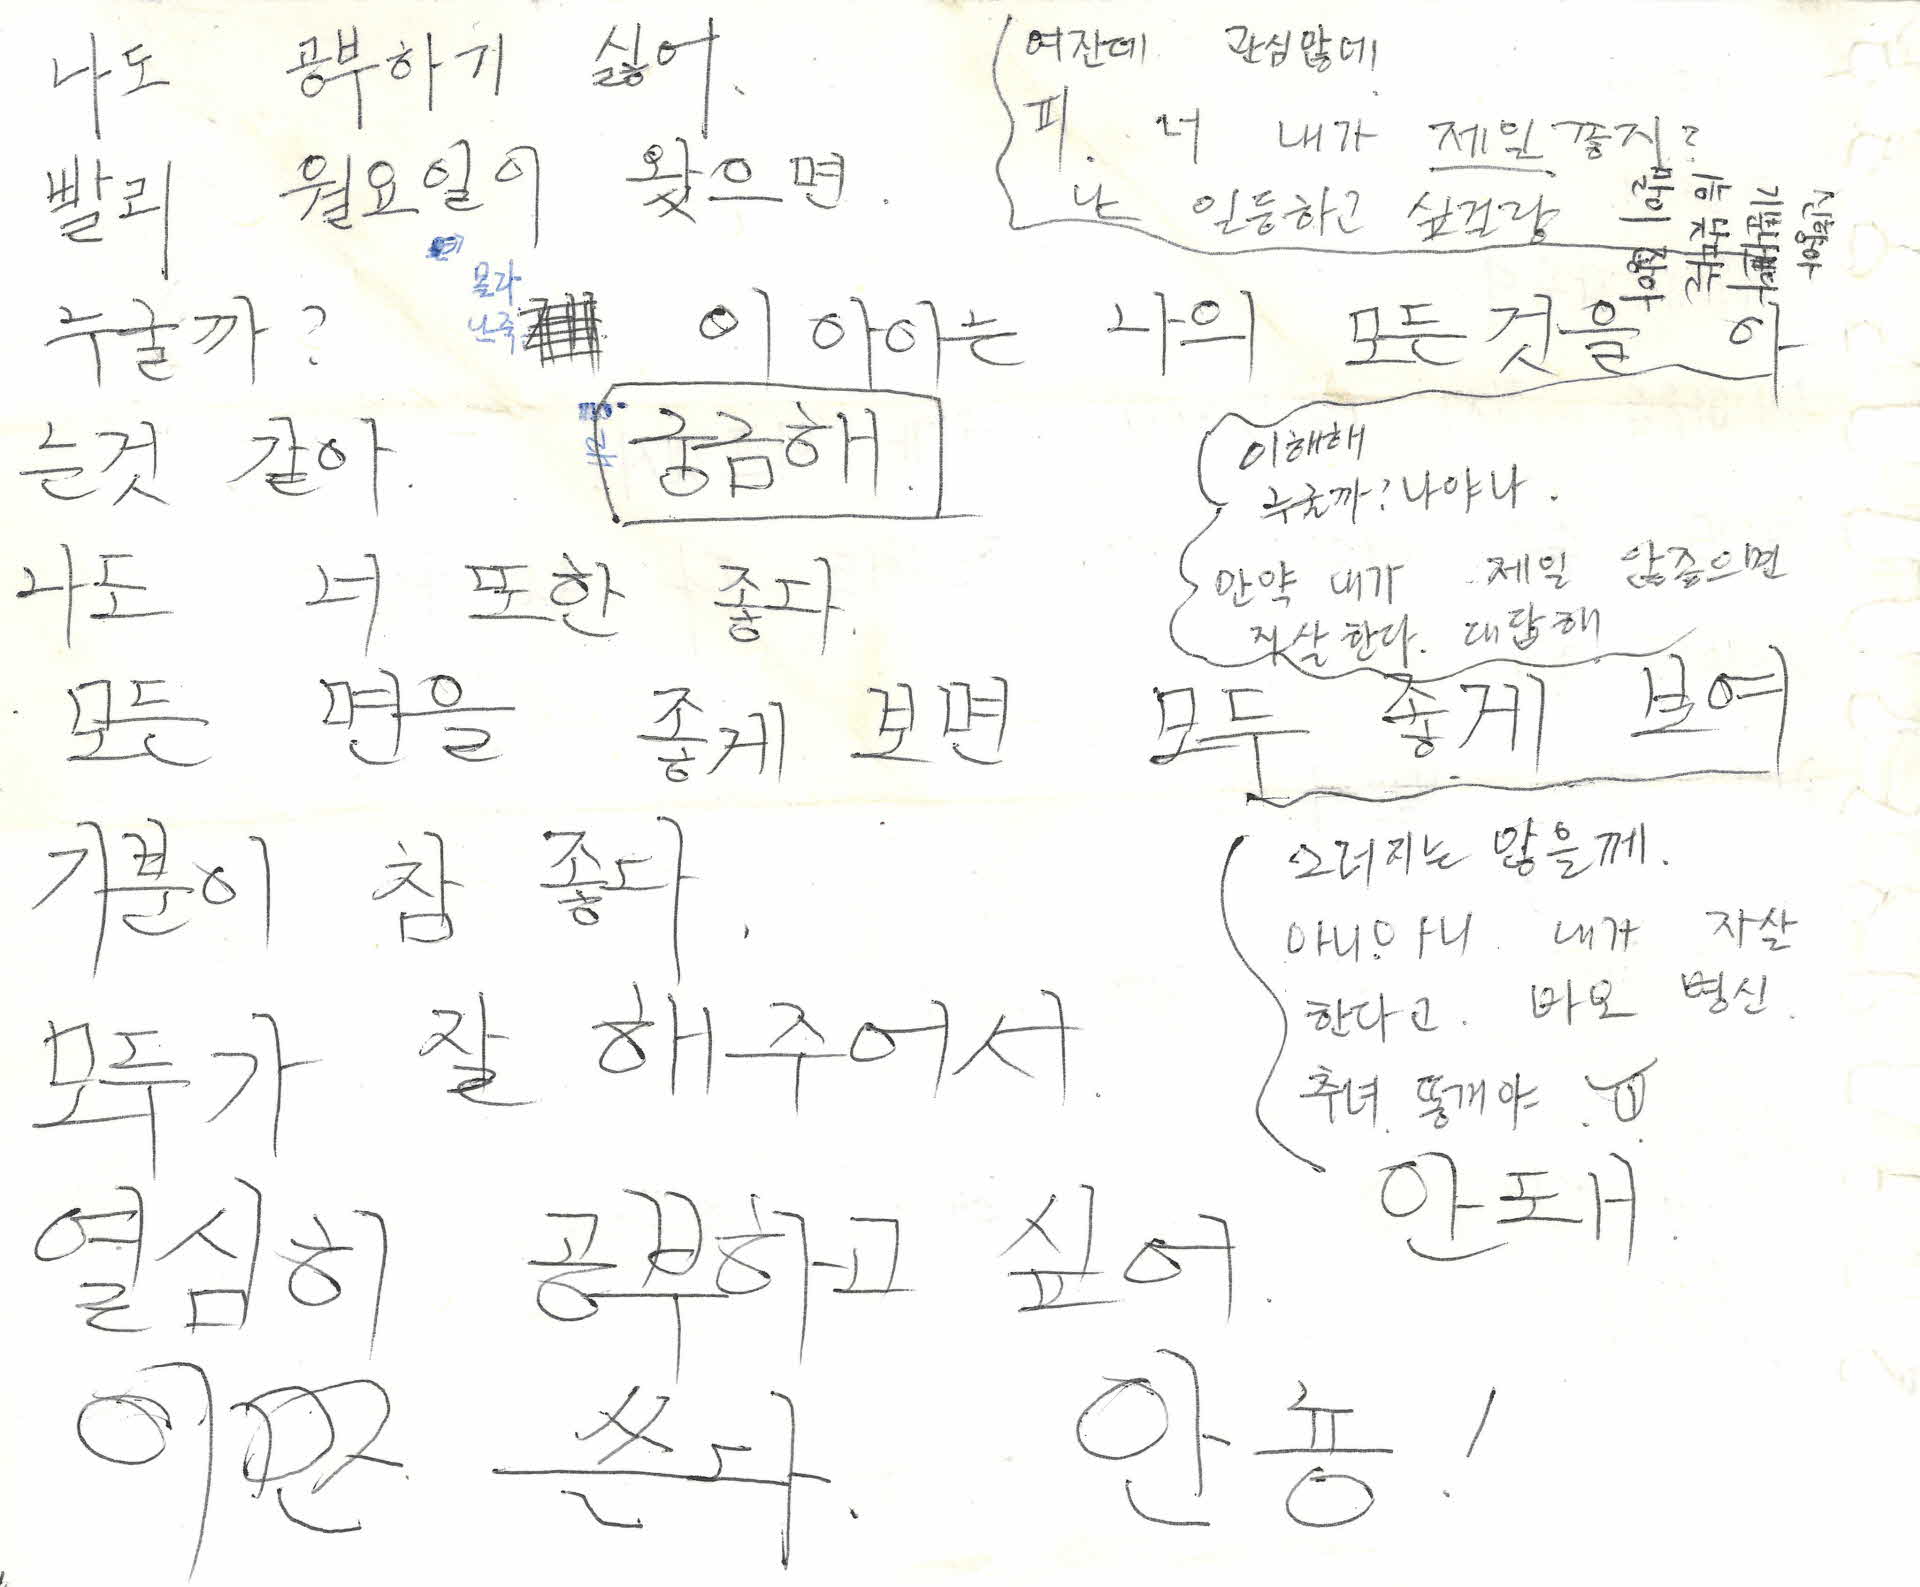 나도 공부하기 싫어.
빨리 월요일이 왔으면.
누굴까? 이 아이는 나의 모든것을 아
는것 같아. 궁금해.
나도 너 또한 좋다.
모든 면을 좋게 보면 모두 좋게 보여
기분이 참 좋다.
모두가 잘 해주어서.
열심히 공부하고 싶어.
이만 쓴다. 안늉!
여잔데 관심많네
피. 너 내가 제일 좋지?
난 일등하고 싶걸랑
몰라
난죽
이해해
누굴까? 나야나.
만약 내가 제일 않좋으면
자살한다. 대답해
그러지는 않을께.
아니아니 내가 자살
한다고. 바보 병신.
추녀. 똥개야.
안도ㅐ.